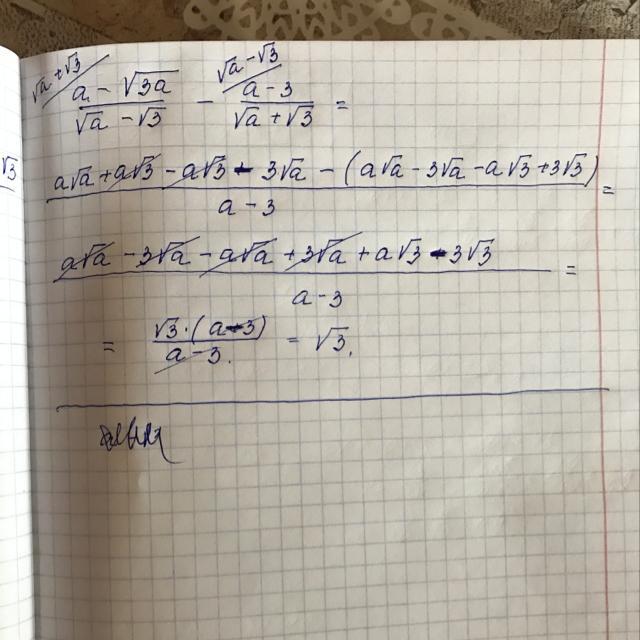 √a + √3 √a - √3
(a - √3a)/(√a - √3) - (a - 3)/(√a + √3) =
√3
(a√a + a√3 - a√3 - 3√a - (a√a - 3√a - a√3 + 3√3))/(a - 3) =
(a√a - 3√a - a√a + 3√a + a√3 - 3√3)/(a - 3) =
= (√3 · (a - 3))/(a - 3) = √3.